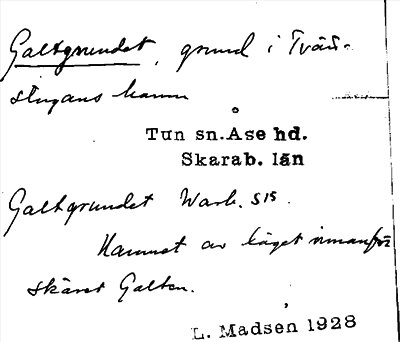 Galtgrundet, grund i Tvär-
stugans hamn
Tun sn. Åse hd.
Skarab. län
Galtgrundet Warb. S15.
Namnet av läget innanför
skäret Galten.
L. Madsen 1928